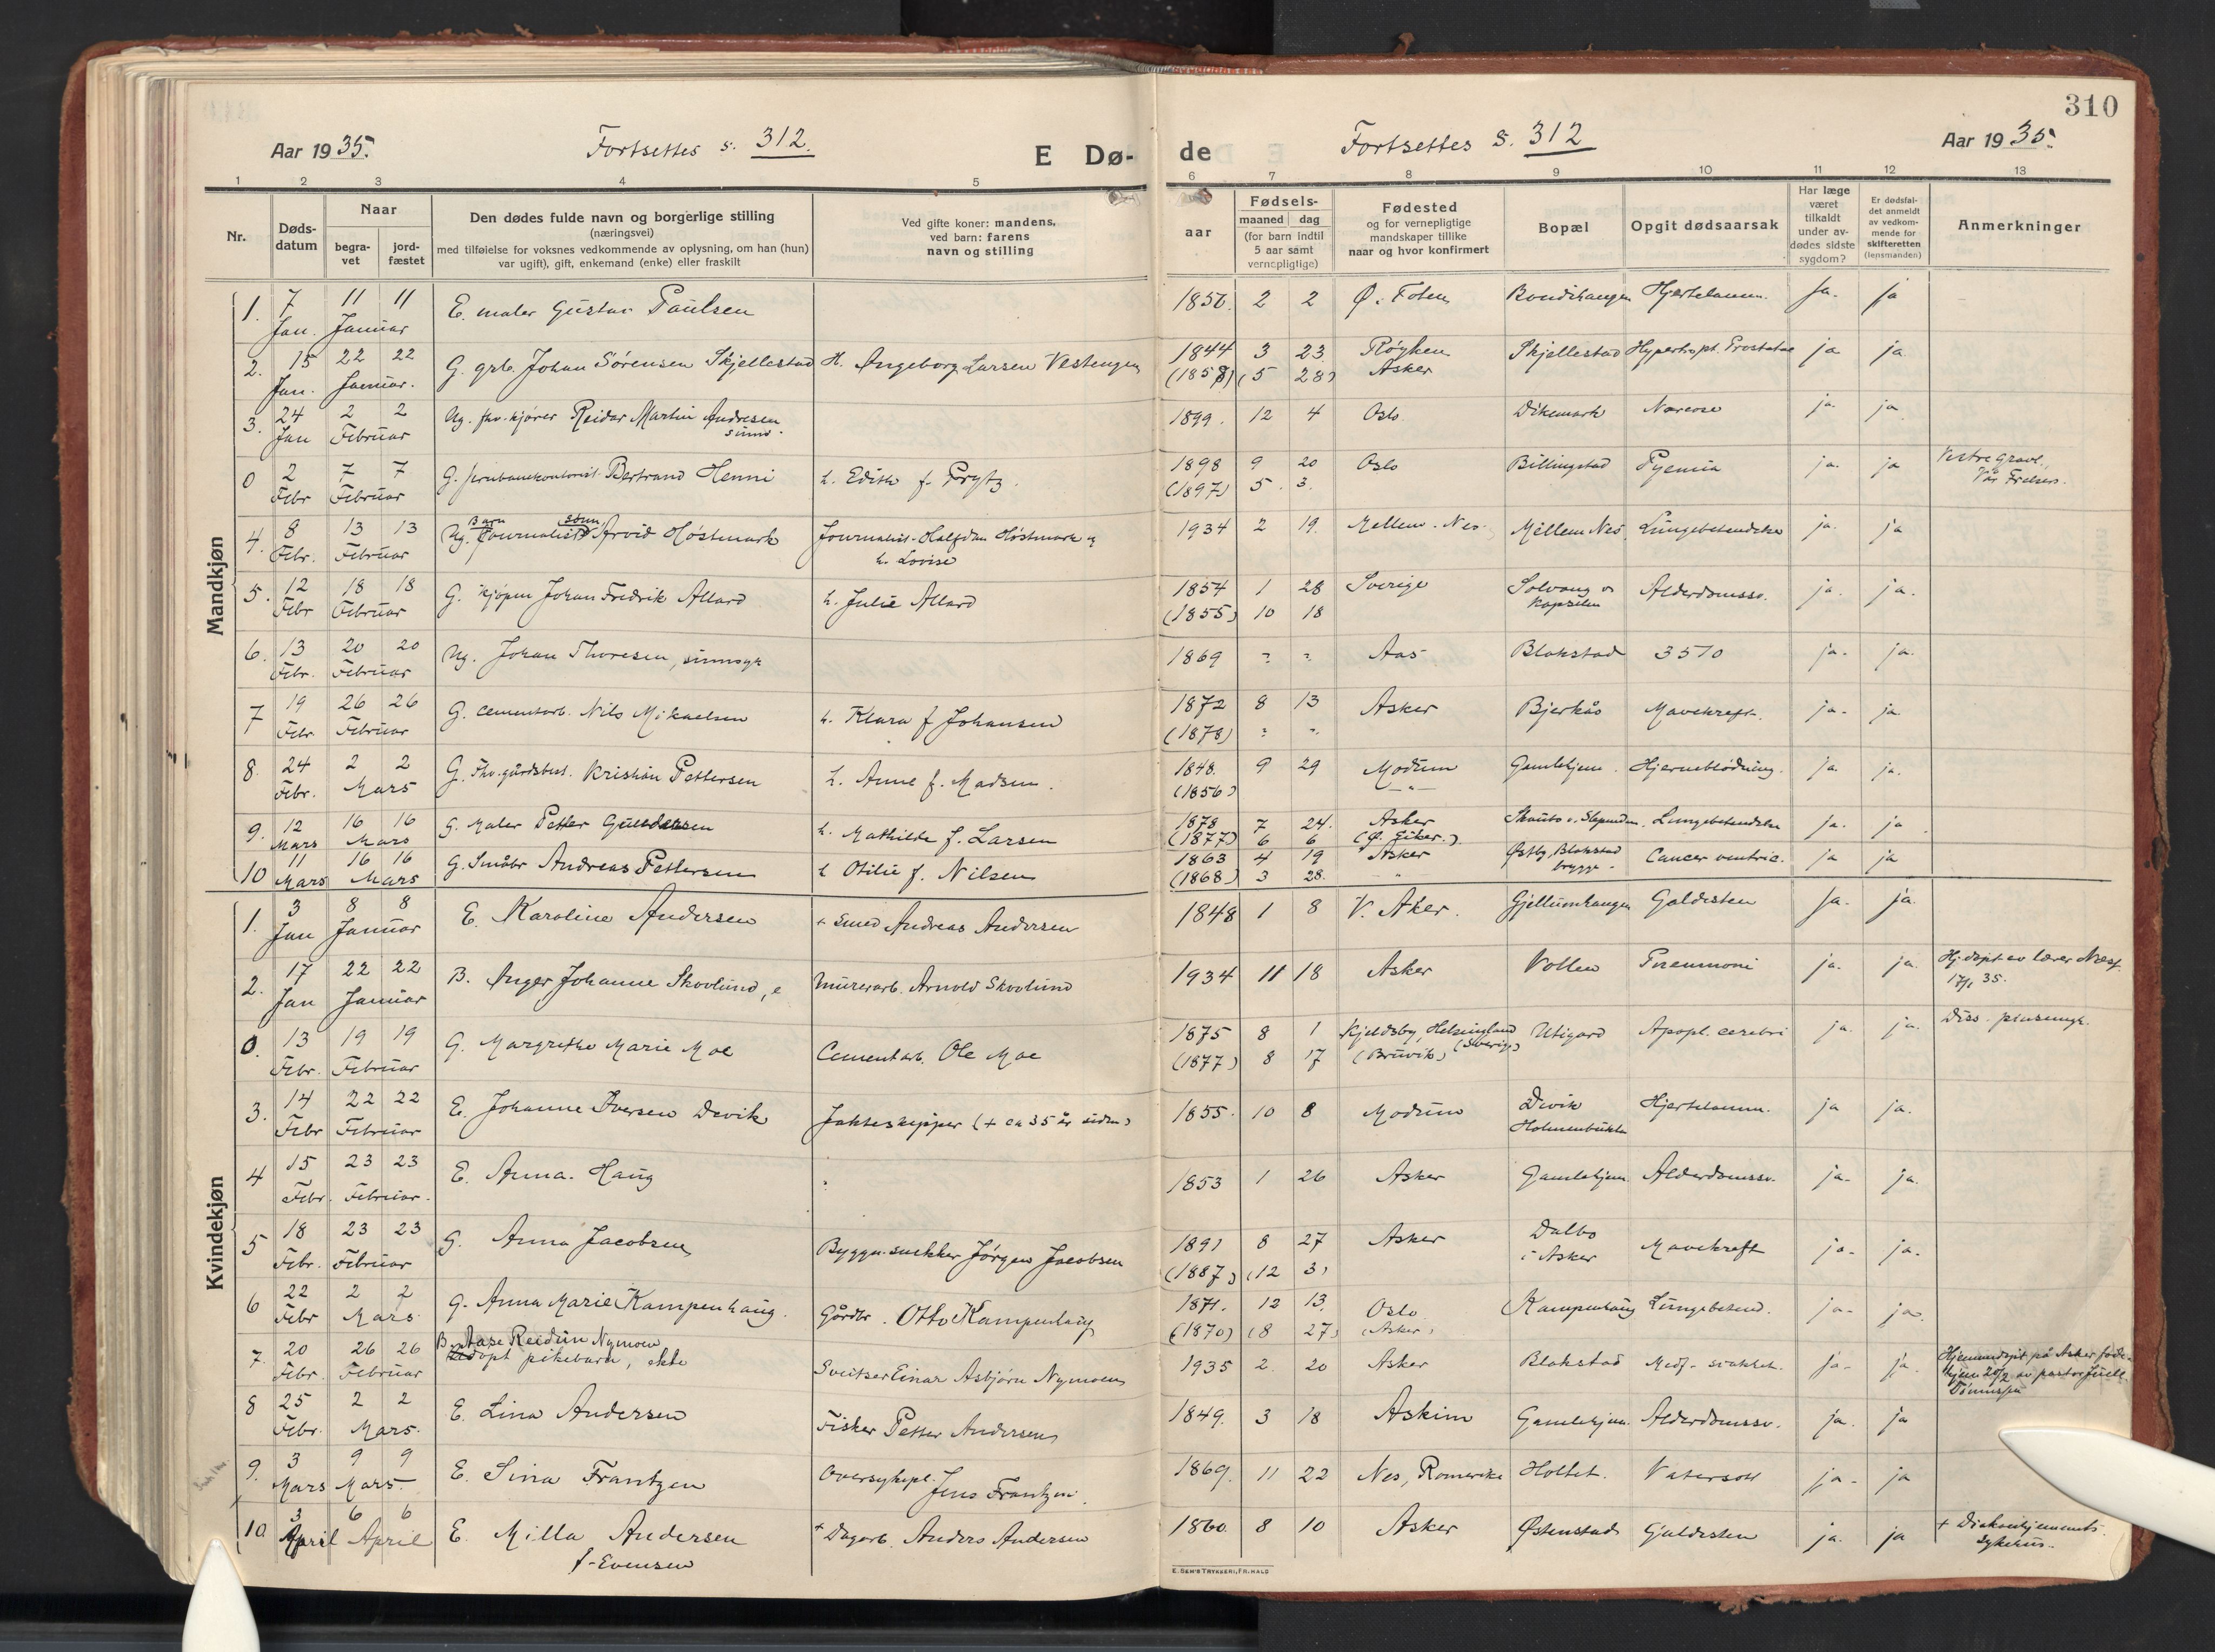 310
Aar 1935. Fortsettes s. 312. E Dø-
de Fortsettes s. 312 Aar 1935.
1 2 3 4 5
6 7 8 9 10 11 12 13
Nr.
Døds-
datum
Naar
begra-
vet
jord-
fæstet
Den dødes fulde navn og borgerlige stilling
(næringsvei)
med tilføielse for voksnes vedkommende av oplysning, om han (hun)
var ugift), gift, enkemand (enke) eller fraskilt
Ved gifte koner: mandens,
ved barn: farens
navn og stilling
aar
Fødsels-
maaned dag
(for barn indtil
5 aar samt
vernepligtige)
Fødested
og for vernepligtige
mandskaper tillike
naar og hvor konfirmert
Bopæl
Opgit dødsaarsak
Har læge
været
tilkaldt
under av-
dødes sidste
sygdom?
Er dødsfal-
det anmeldt
av vedkom-
mende for
skifteretten
(lensmanden)
Anmerkninger
Mandkjøn
1. 7 Jan. 11 11 Januar E. maler Gustav Paulsen 1850. 2 2 Ø. Toten Hjertelamm. Ja. ja
2. 15 Jan. 22 22 Januar. G. grb. Johan Sørensen Skjellestad H. Ingeborg Larsen Vestengen 1844 3 23 Røyken Skjellestad Hypertropt. Prostatae ja ja.
(1858) (5 28) Asker
3. 24 Jan 2 2 Februar Ug. fhv. kjører Reidar Martin Andresen 1899. 12 4 Oslo. Dikemark Narcose ja. ja
sinns.
0 2 Febr 7 7 Februar G. jernbanekontorist Bertrand Henni h. Edith f. Prytz. 1898 9 20 Oslo Billingstad Pyemia ja. ja Vestre Gravl.,
(1897) 5. 3. Vår Frelsers.
4. 8 Febr. 13 13 Februar Ug. Barn Journalist sønn Arvid Høstmark Journalist Halfdan Høstmark og 1934 2 19. Mellem-Nes. Mellem Nes Lungebetendelse ja. ja
h. Lovise
5. 12 Febr 18 18 Februar G. kjøpm Johan Fredrik Allard h. Julie Allard 1854 1 28 Sverige Solvang v. Alderdomssv. ja. ja.
(1855) 10 18 kapellen
6. 13 Febr. 20 20 Februar Ug. Johan Thoresen, sinnsyk 1869 ? ? Aas Blakstad 3510 ja. ja.
7 19 Febr. 26 26 Februar G. cementarb. Nils Mikaelsen h. Klara f. Johansen 1872 8 13 Asker Bjerkås Mavekreft. ja. ja
(1878) ? ?
8. 24 Febr. 2 2 Mars G. Fhv. gårdsbest. Kristian Pettersen h. Anne f. Madsen. 1848. 9 29 Modum Gamlehjem. Hjerneblødning. ja. ja.
(1856) — " —
9. 12 Mars 16 16 Mars G. Maler Petter Gundersen h. Mathilde f. Larsen 1878 7 24. Asker Lungebetendelse ja. ja
(1877) 6 6 (Ø. Eiker.)
10 11 Mars 16 16 Mars G. Småbr Andreas Pettersen h Otilie f. Nilsen 1863 4 19 Asker Østby, Blakstad Cancer ventric. ja ja
(1868) 3 28. " brygge.
Kvindekjøn
1. 3 Jan 8 8 Januar E. Karoline Andersen + smed Andreas Andersen 1848 1 8 V. Aker. Gjellumhaugen Galdesten Ja. ja.
2. 17 Jan 22 22 Januar B. Inger Johanne Skovlund, e Murerarb. Arnold Skovlund 1934 11 18 Asker Vollen Pneumoni ja. ja. Hj. døpt av lærer Næss
17/1 35.
0. 13 Febr. 19 19 Februar G. Margrethe Marie Moe Cementarb. Ole Moe 1875 8 1 Kjeldsby, Helsingland Utigard Apopl. cerebri ja ja. Diss.
(1877) 8 17 (Bruvik) (Sverige)
3. 14 Febr 22 22 Februar E. Johanne Iversen Devik Jakteskipper (+ ca 35 år siden) 1855. 10 8 Modum Devik Hjertelamm. ja ja.
Holmenbukta
4 15 Febr. 23 23 Februar. E. Anna Haug 1853 1 26 Asker Gamlehjem Alderdomssv. ja. ja.
5 18 Febr. 23 23 Februar G. Anna Jacobsen Byggn. snekker Jørgen Jacobsen 1891 8 27 Asker Dalbo Mavekreft ja. ja.
(1887) (12 3) i Asker
6 22 Febr 2 2 Mars G. Anna Marie Kampenhaug. Gårdbr. Otto Kampenhaug 1871. 12 13. Oslo Kampenhaug Lungebetend. ja. ja.
(1870) (8 27) (Asker)
7. 20 Febr. 26 26 Februar B. Aase Reidun Nymoen
Udøpt pikebarn, ekte Sveitser Einar Asbjørn Nymoen 1935 2. 20 Asker Blakstad Medf. svakhet. ja. ja. Hjemmedøpt på Asker føde-
hjem 20/2 av pastor Juell
8 25 Febr. 2 2 Mars. E. Lina Andersen Fisker Petter Andersen 1849. 3 18 Askim Gamlehjem. Alderdomssv. ja. ja
9. 3 Mars 9 9 Mars E. Sina Frantzen Oversykepl. Jens Frantzen. 1869. 11 22 Nes, Romerike Holtet. Vatersott ja. ja
10 3 April 6 6 April E. Milla Andersen + Dagarb. Anders Andersen 1860. 8 10 Asker Østenstad Galdesten ja. ja + Diakonhjemmets
f. Evensen sykehus.
E. SEM'S TRYKKERI, FR.HALD